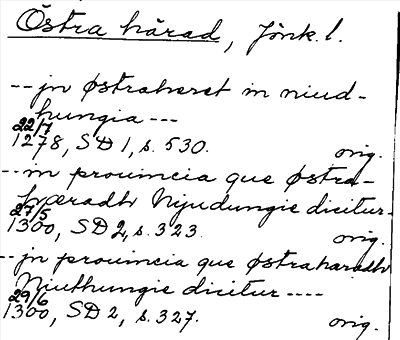 Östra härad, Jönk. l.
-- jn østraheret in niud-
hungia ---
22/7
1278, SD 1, s. 530. orig.
-- in prouincia que østra-
hæradh Niudungie dicitur.
27/5
1300, SD 2, s. 323. orig.
-- jn prouincia que østraharadh
Niuthungie dicitur ----
29/6
1300, SD 2, s. 327. orig.